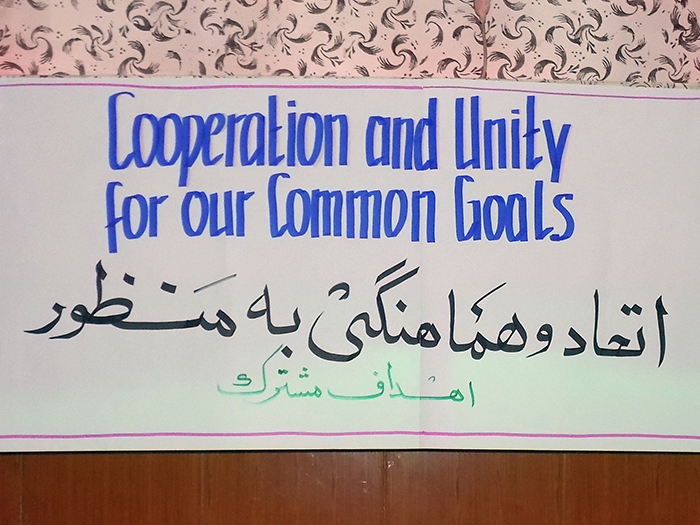 Cooperation and Unity
for our Common Goals
اتحاد و هماهنگی به منظور
اهداف مشترک